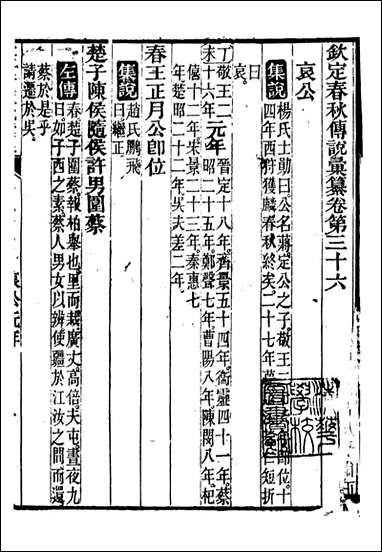 欽定春秋傳說彙纂卷第三十六
哀公
集說
楊氏士勛曰公名蔣定公之子敬王二
四年西狩獲麟春秋終矣二十七年薨
位十
仁短折
曰
哀
丁敬王二
未十六年
元年
晉定十八年齊景五十四年衞靈四十一年蔡
昭二十五年鄭聲七年曹陽八年陳閔八年杞
僖十二年宋景二十三年秦惠七
年楚昭二十二年吳夫差二年
春王正月公卽位
集說
趙氏鵬飛
曰繼正
楚子陳侯隨侯許男圍蔡
左傳
春楚子圍蔡報柏舉也里而栽廣丈高倍夫屯晝夜九
日如子西之素蔡人男女以辨使疆於江汝之閒而還
蔡於是乎
請遷於吳